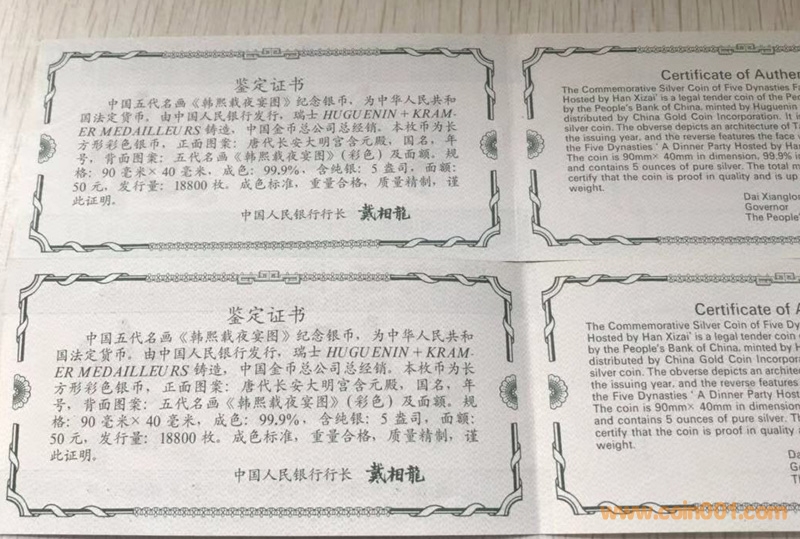 鉴定证书
中国五代名画《韩熙载夜宴图》纪念银币，为中华人民共和
国法定货币。由中国人民银行发行，瑞士 HUGUENIN + KRAM-
ER MEDAILLEURS 铸造，中国金币总公司总经销。本枚币为长
方形彩色银币，正面图案：唐代长安大明宫含元殿，国名，年
号，背面图案：五代名画《韩熙载夜宴图》（彩色）及面额。规
格：90 毫米× 40 毫米，成色：99.9%，含纯银：5 盎司，面额：
50 元，发行量：18800 枚。成色标准，重量合格，质量精制，谨
此证明。
中国人民银行行长 戴相龍
Certificate of Authen
The Commemorative Silver Coin of Five Dynasties F
Hosted by Han Xizai' is a legal tender coin of the Peo
by the People's Bank of China, minted by Huguenin
distributed by China Gold Coin Incorporation. It i
silver coin. The obverse depicts an architecture of T
the issuing year, and the reverse features the face
the Five Dynasties ' A Dinner Party Hosted by Ha
The coin is 90mm× 40mm in dimension, 99.9% in
and contains 5 ounces of pure silver. The total m
certify that the coin is proof in quality and is up
weight.
Dai Xianglon
Governor
The People'
鉴定证书
中国五代名画《韩熙载夜宴图》纪念银币，为中华人民共和
国法定货币。由中国人民银行发行，瑞士 HUGUENIN + KRAM-
ER MEDAILLEURS 铸造，中国金币总公司总经销。本枚币为长
方形彩色银币，正面图案：唐代长安大明宫含元殿，国名，年
号，背面图案：五代名画《韩熙载夜宴图》（彩色）及面额。规
格：90 毫米× 40 毫米，成色：99.9%，含纯银：5 盎司，面额：
50 元，发行量：18800 枚。成色标准，重量合格，质量精制，谨
此证明。
中国人民银行行长 戴相龍
Certificate of A
The Commemorative Silver Coin of Five Dy
Hosted by Han Xizai' is a legal tender coin
by the People's Bank of China, minted by H
distributed by China Gold Coin Incorpora
silver coin. The obverse depicts an architec
the issuing year, and the reverse features
the Five Dynasties ' A Dinner Party Host
The coin is 90mm× 40mm in dimension
and contains 5 ounces of pure silver. T
certify that the coin is proof in quality a
weight.
Da
Go
Th
www.coin001.com